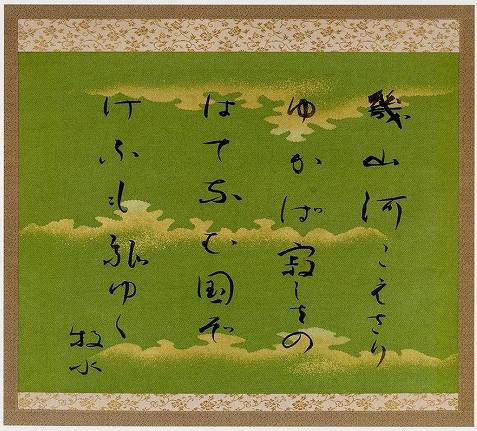 幾山河こえさり
ゆかば寂しさの
はてなむ国ぞ
けふも旅ゆく
牧水